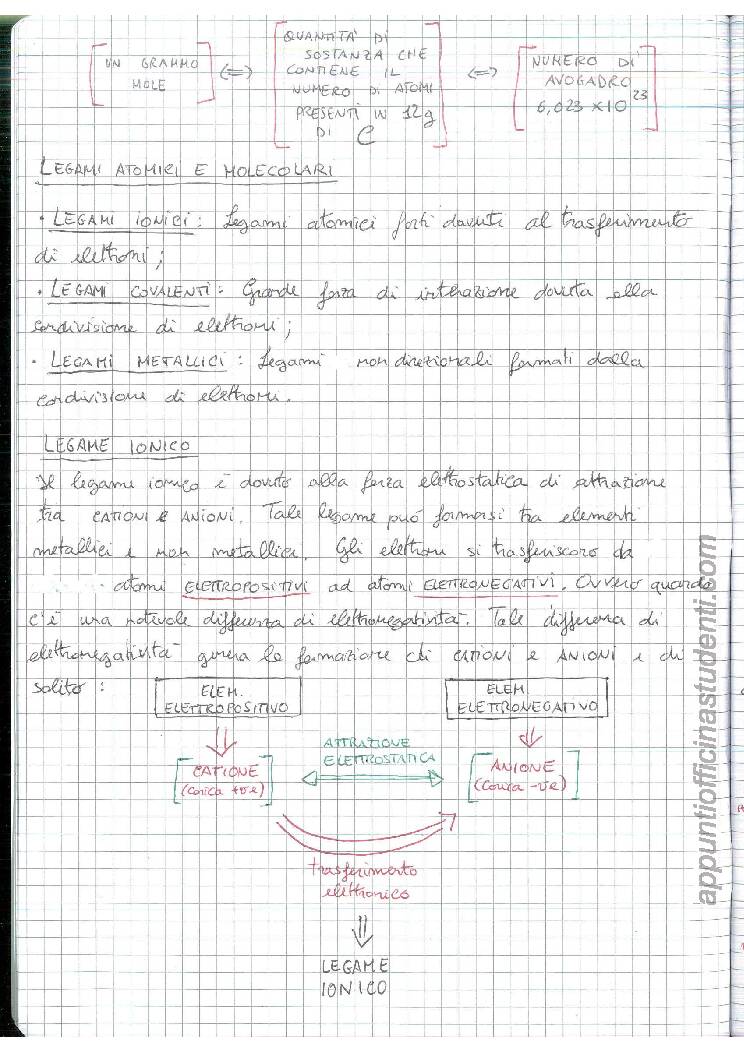 [UN GRAMMO MOLE] <=> [QUANTITA' DI SOSTANZA CHE CONTIENE IL NUMERO DI ATOMI PRESENTI IN 12g DI C] <=> [NUMERO DI AVOGADRO 6,023 × 10^23]
LEGAMI ATOMICI E MOLECOLARI
· LEGAMI IONICI: Legami atomici forti dovuti al trasferimento
di elettroni;
· LEGAMI COVALENTI: Grande forza di interazione dovuta alla
condivisione di elettroni;
· LEGAMI METALLICI: Legami non direzionali formati dalla
condivisione di elettroni.
LEGAME IONICO
Il legame ionico è dovuto alla forza elettrostatica di attrazione
tra CATIONI E ANIONI. Tale legame può formarsi tra elementi
metallici e non metallici. Gli elettroni si trasferiscono da
atomi ELETTROPOSITIVI ad atomi ELETTRONEGATIVI. Ovvero quando
c'è una notevole differenza di elettronegatività. Tale differenza di
elettronegatività genera la formazione di CATIONI e ANIONI e di
solito:
ELEM. ELETTROPOSITIVO
ELEM. ELETTRONEGATIVO
ATTRAZIONE
ELETTROSTATICA
[CATIONE (carica +ve)]
[ANIONE (carica -ve)]
trasferimento
elettronico
LEGAME
IONICO
appuntiofficinastudenti.com